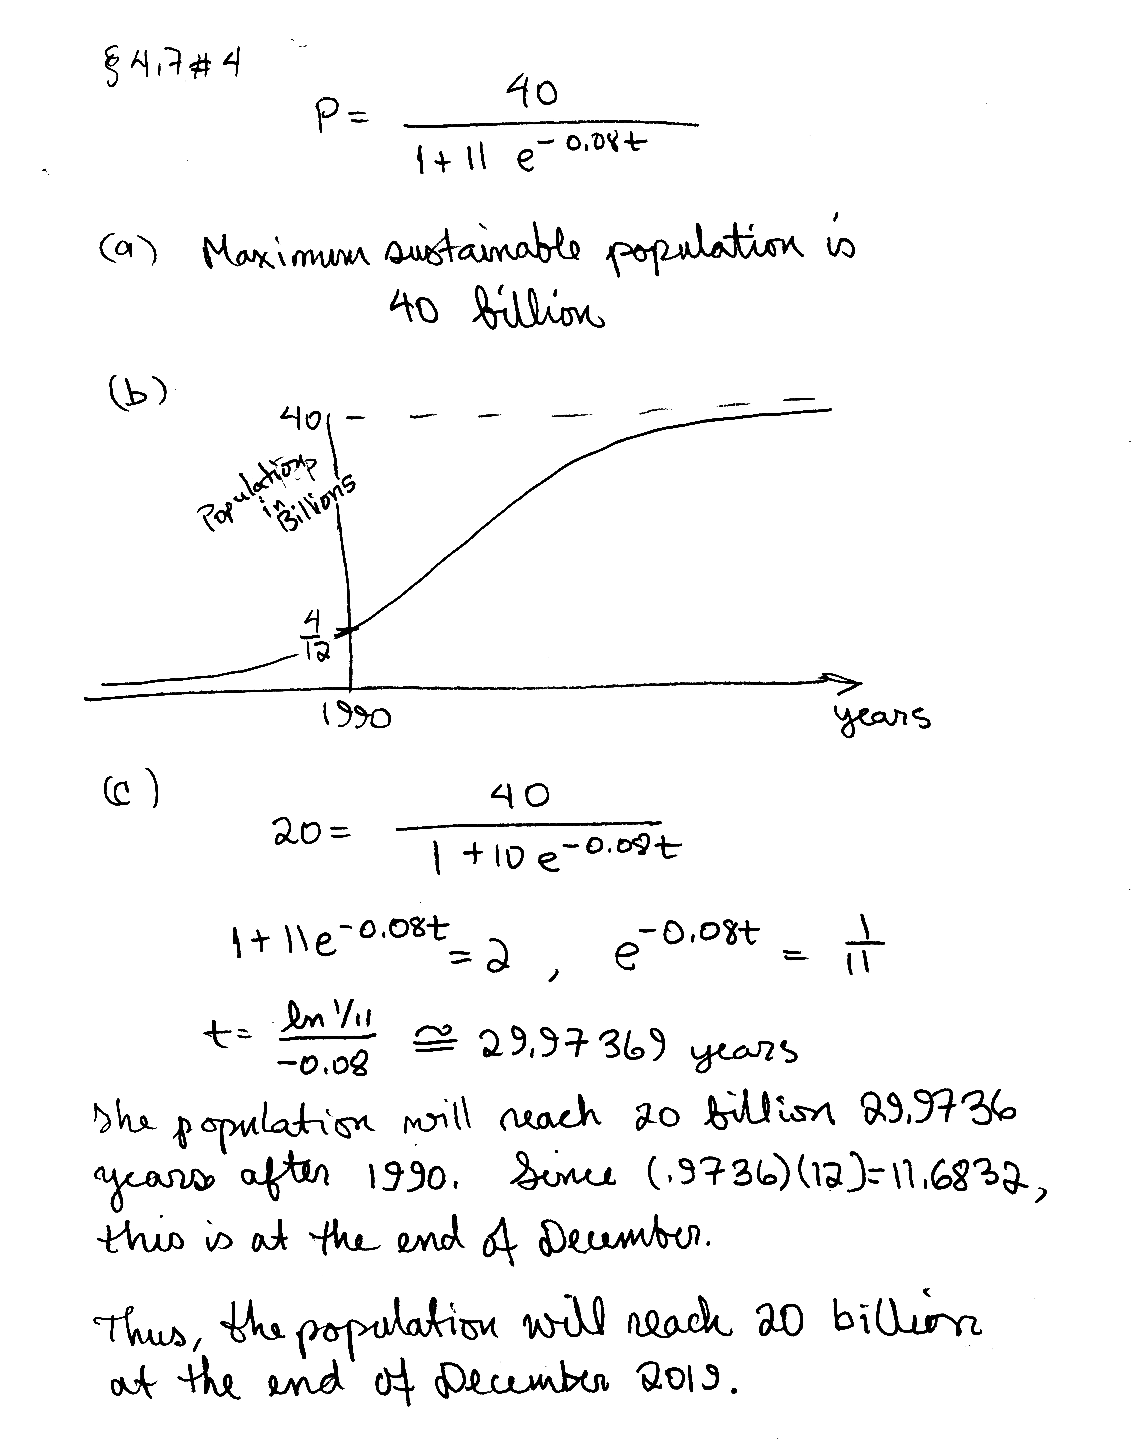 § 4.7 # 4
P = 40 / (1 + 11 e^-0.08t)
(a) Maximum sustainable population is
40 billion
(b)
40
Population
in
Billions
4/12
1990
years
(c)
20 = 40 / (1 + 10 e^-0.08t)
1 + 11e^-0.08t = 2 , e^-0.08t = 1/11
t = ln 1/11 / -0.08 ≅ 29.97369 years
The population will reach 20 billion 29.9736
years after 1990. Since (.9736)(12)=11.6832,
this is at the end of December.
Thus, the population will reach 20 billion
at the end of December 2019.